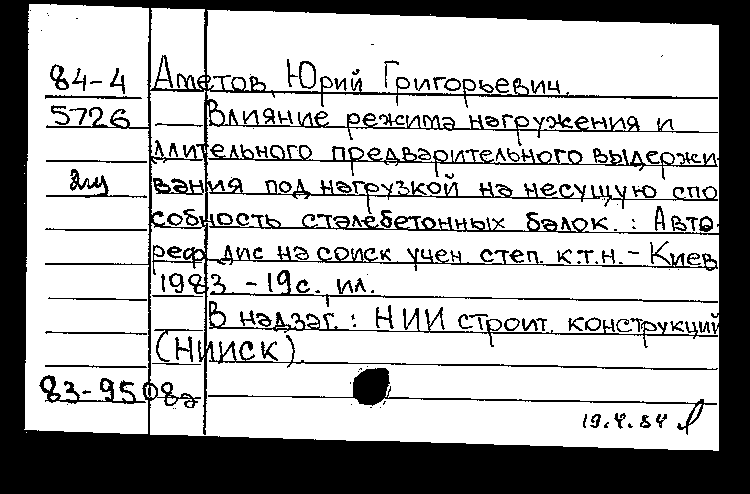 84-4 Аметов, Юрий Григорьевич.
5726 Влияние режима нагружения и
длительного предварительного выдержи-
вания под нагрузкой на несущую спо
собность сталебетонных балок. : Авто-
реф дис на соиск учен степ. к.т.н. - Киев
1983 - 19с., ил.
В надзаг. : НИИ строит. конструкций
(НИИСК).
83-9508а
19.4.84